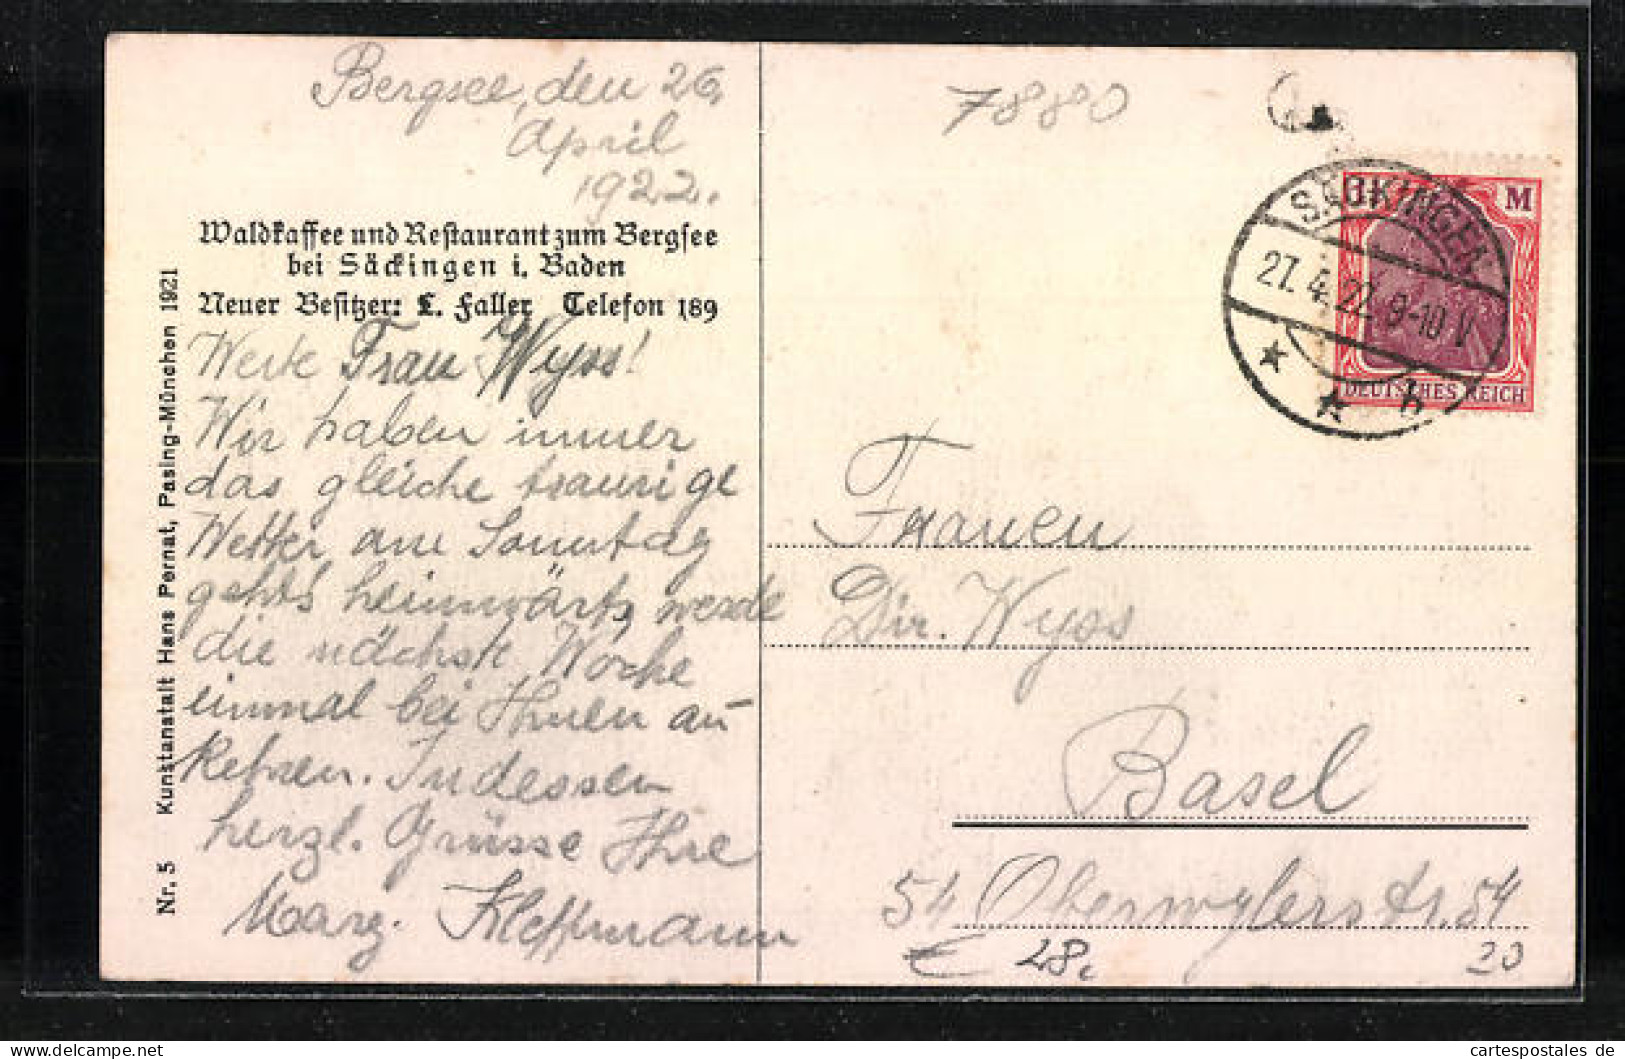 Bergsee, den 26.
April
1922.
Waldkaffee und Restaurant zum Bergsee
bei Säckingen i. Baden
Neuer Besitzer: L. Faller Telefon 189
Werte Frau Wyss!
Wir haben immer
das gleiche traurige
Wetter am Sonntag
geht's heimwärts, werde
die nächste Woche
einmal bei Ihnen an
kehren. Indessen
herzl. Grüsse Ihre
Marg. Kleffmann
Nr. 5 Kunstanstalt Hans Pernat, Pasing-München 1921
7880
SÄCKINGEN
27.4.22. 9-10 V
* * b
M
DEUTSCHES REICH
Frauen
Dir. Wyss
Basel
54 Oberwylerstr. 54
€ 28.
20
cartespostales de